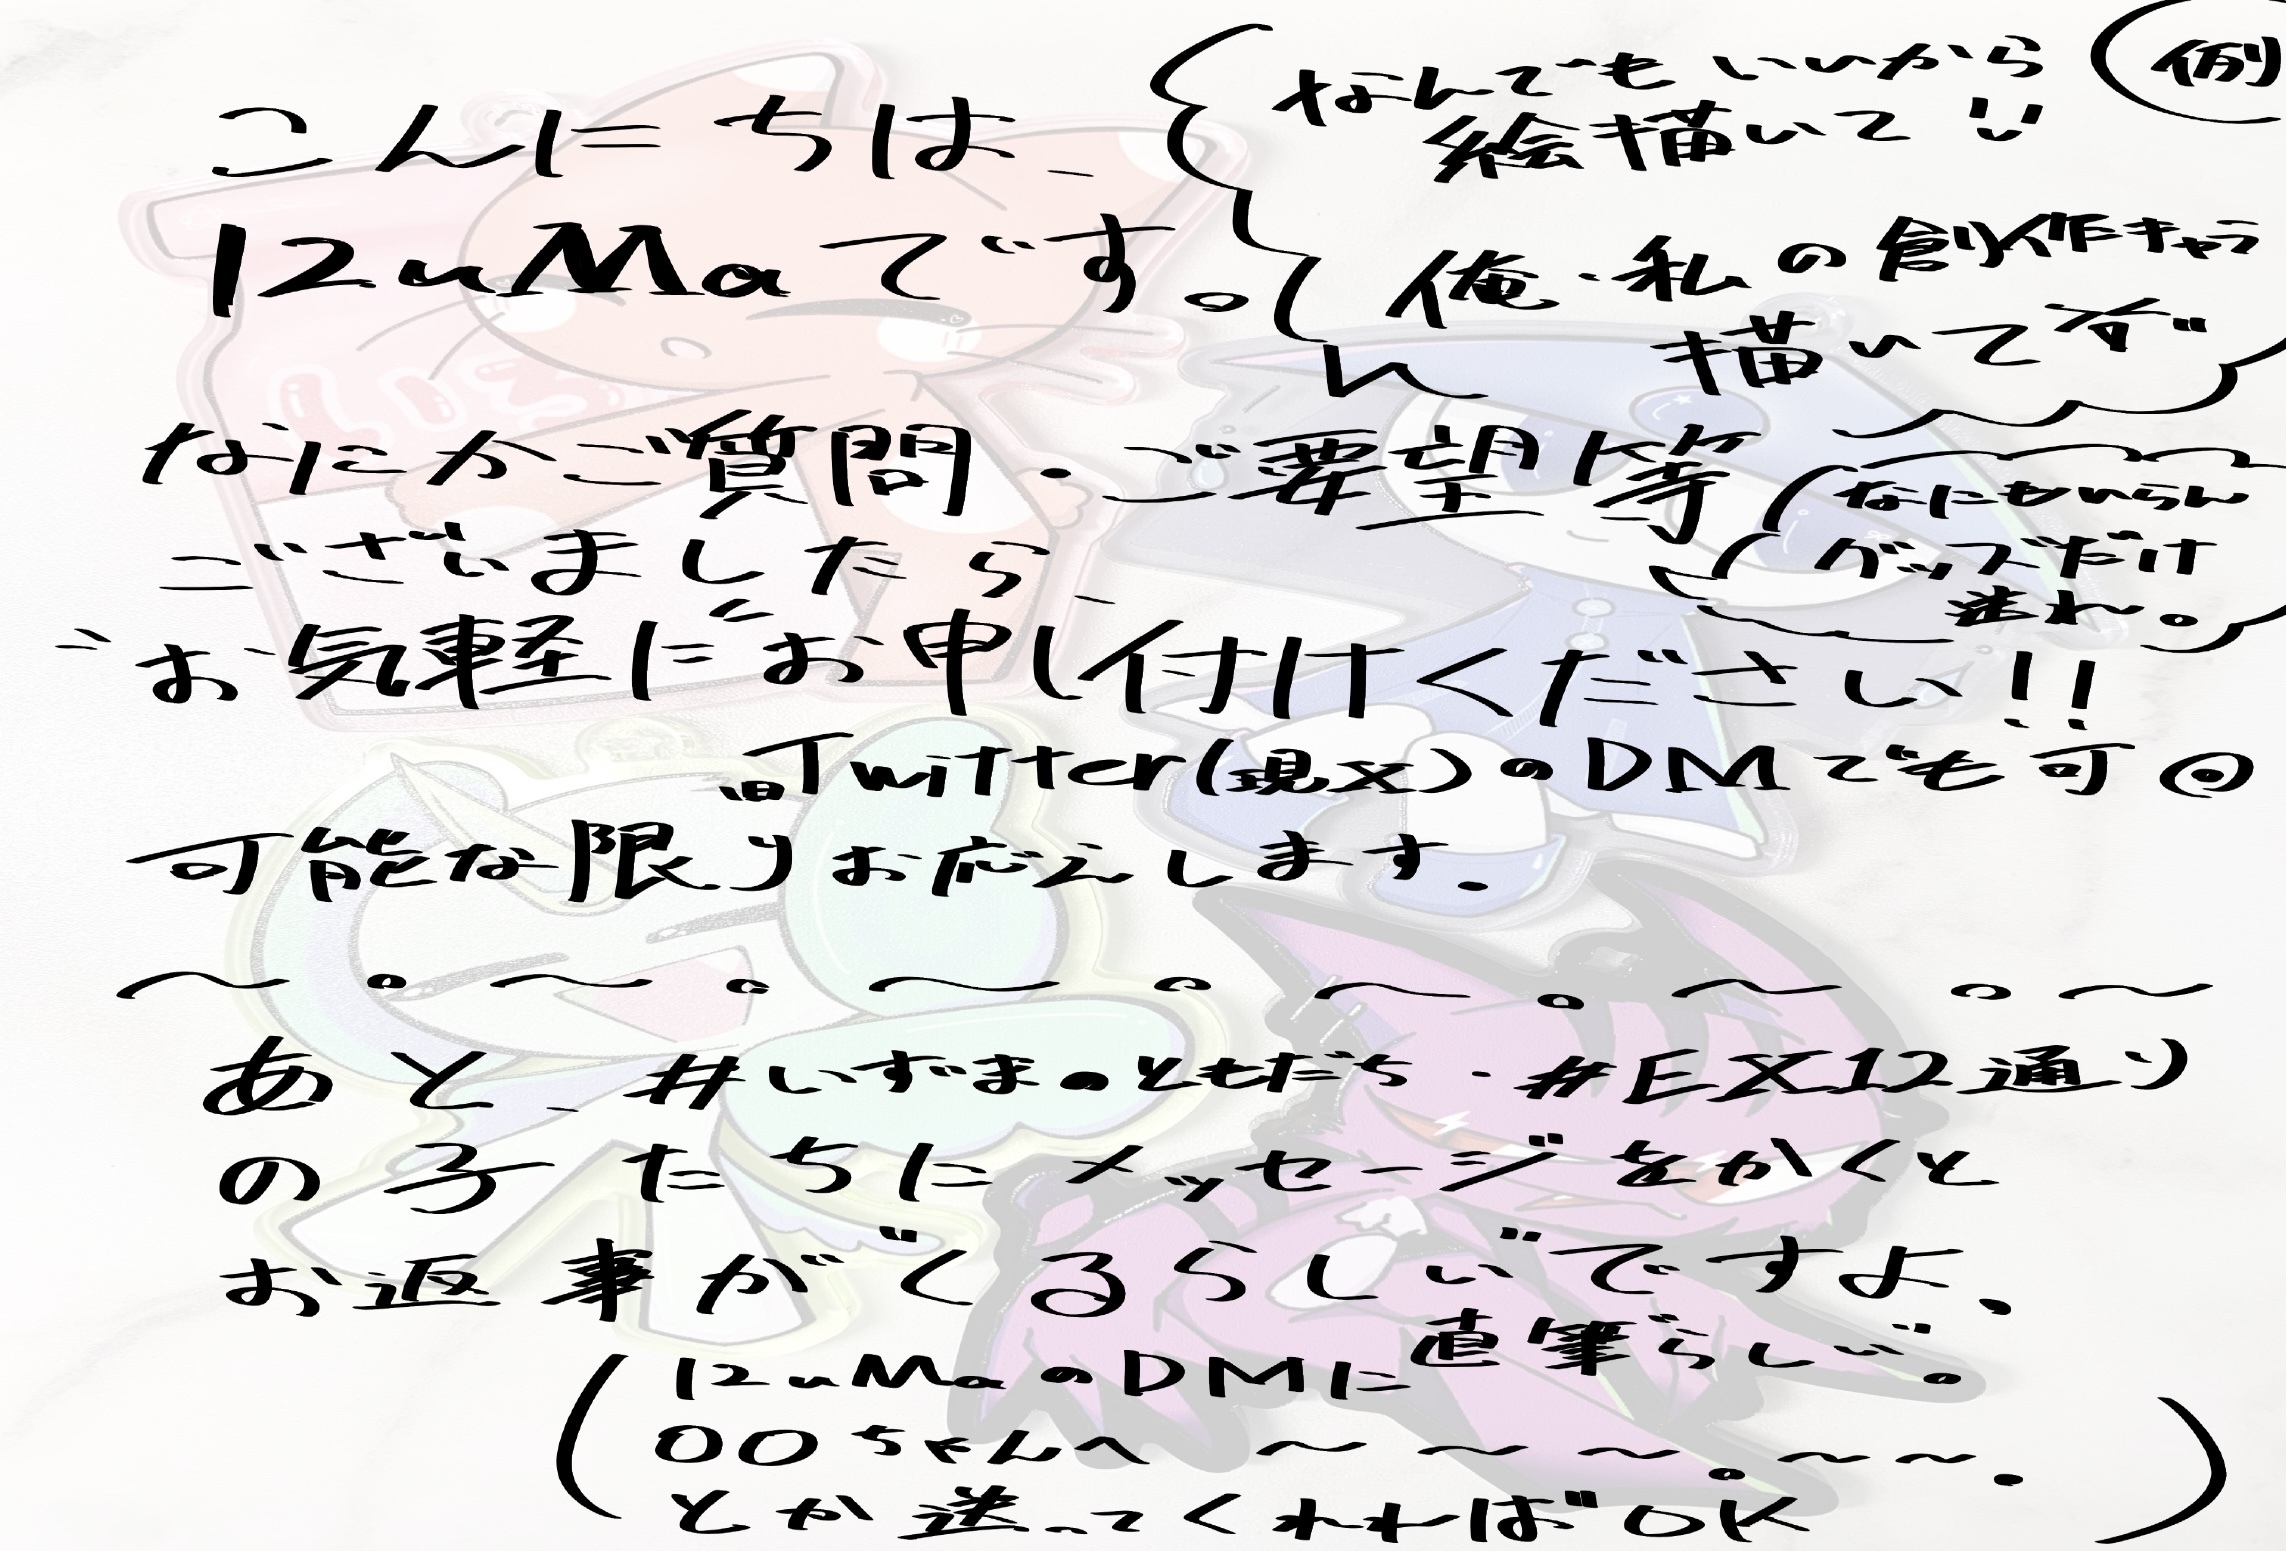 こんにちは、
12uMaです。
例
なんでもいいから
絵描いて!!
俺・私の創作キャラ
描いてﾞす
なにかご質問・ご要望等
なにもいらん
グッズだけ
送れ。
ございましたら、
"お気軽に"お申し付けください!!
旧Twitter(現X)のDMでも可◎
可能な限りお応えします。
〜。〜。〜。〜。〜。〜
あと、#いずまのともだち・#EX12通り
の子たちにメッセージをかくと
お返事がくるらしいですよ、
直筆らしい。
(12uMaのDMに
〇〇ちゃんへ 〜〜〜。〜〜。
とか送ってくれればOK)